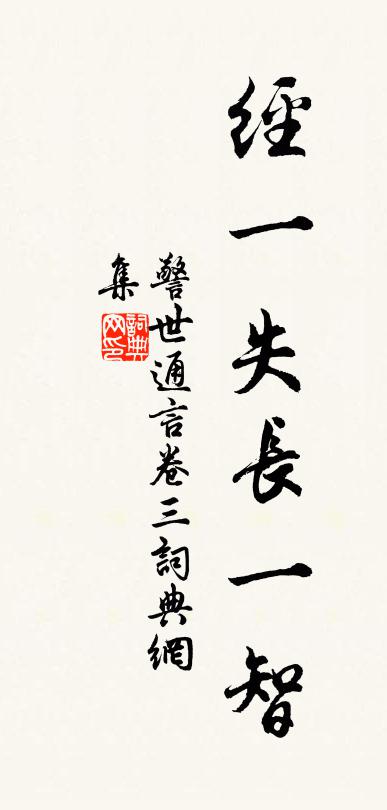 經一失長一智
警世通言卷三詞典網
集
詞典网印